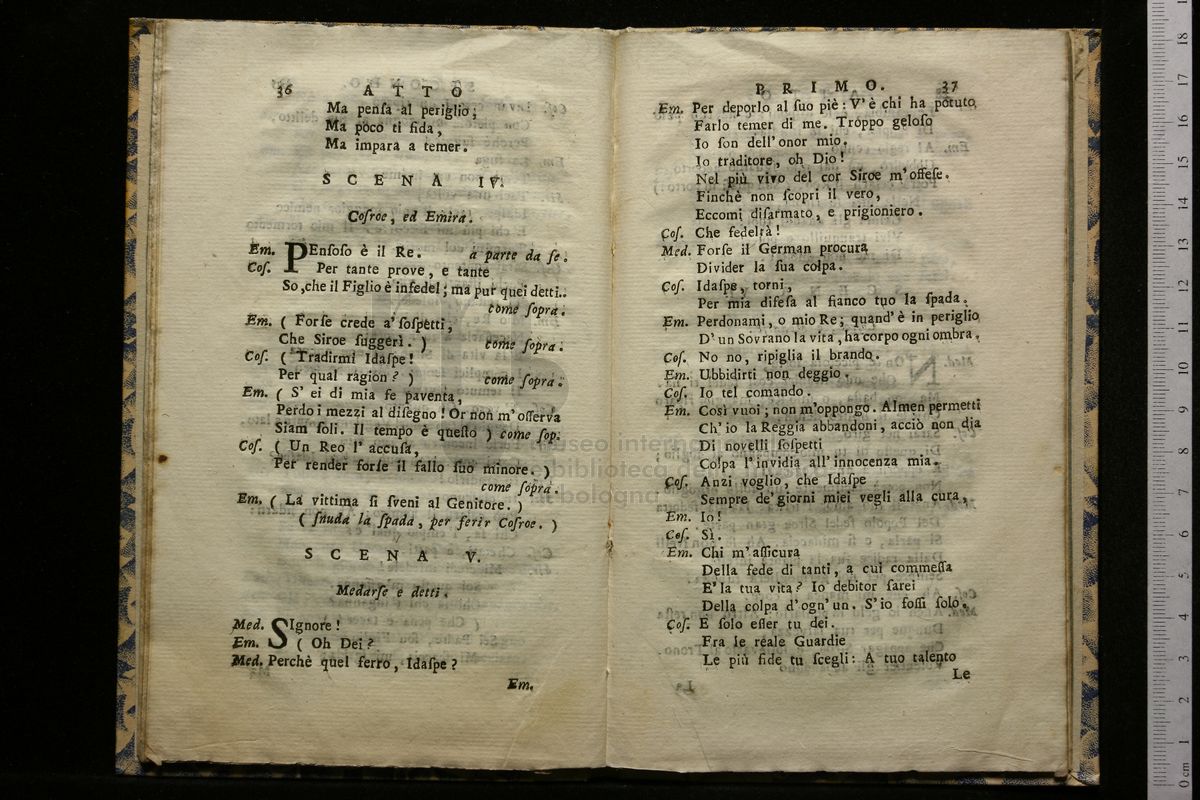 36 ATTO
Ma penſa al periglio;
Ma poco ti fida,
Ma impara a temer.
SCENA IV.
Coſroe, ed Emira.
Em. PEnſoſo è il Re. a parte da ſe.
Coſ. Per tante prove, e tante
So, che il Figlio è infedel; ma pur quei detti..
come ſopra.
Em. ( Forſe crede a' ſoſpetti,
Che Siroe ſuggerì. ) come ſopra.
Coſ. ( Tradirmi Idaſpe!
Per qual ragion? ) come ſopra.
Em. ( S' ei di mia fe paventa,
Perdo i mezzi al diſegno! Or non m' oſſerva
Siam ſoli. Il tempo è queſto ) come ſop.
Coſ. ( Un Reo l' accuſa,
Per render forſe il fallo ſuo minore. )
come ſopra.
Em. ( La vittima ſi ſveni al Genitore. )
( ſnuda la ſpada, per ferir Coſroe. )
SCENA V.
Medarſe e detti.
Med. SIgnore!
Em. ( Oh Dei?
Med. Perchè quel ferro, Idaſpe?
Em.
PRIMO. 37
Em. Per deporlo al ſuo piè: V' è chi ha potuto
Farlo temer di me. Troppo geloſo
Io ſon dell' onor mio.
Io traditore, oh Dio!
Nel più vivo del cor Siroe m' offeſe.
Finchè non ſcopri il vero,
Eccomi diſarmato, e prigioniero.
Coſ. Che fedeltà!
Med. Forſe il German procura
Divider la ſua colpa.
Coſ. Idaſpe, torni,
Per mia difeſa al fianco tuo la ſpada.
Em. Perdonami, o mio Re; quand' è in periglio
D' un Sovrano la vita, ha corpo ogni ombra.
Coſ. No no, ripiglia il brando.
Em. Ubbidirti non deggio.
Coſ. Io tel comando.
Em. Così vuoi; non m'oppongo. Almen permetti
Ch' io la Reggia abbandoni, acciò non dia
Di novelli ſoſpetti
Colpa l' invidia all' innocenza mia.
Coſ. Anzi voglio, che Idaſpe
Sempre de' giorni miei vegli alla cura,
Em. Io!
Coſ. Sì.
Em. Chi m' aſſicura
Della fede di tanti, a cui commeſſa
E' la tua vita? Io debitor ſarei
Della colpa d' ogn' un. S' io foſſi ſolo.
Coſ. E ſolo eſſer tu dei.
Fra le reale Guardie
Le più fide tu ſcegli: A tuo talento
Le